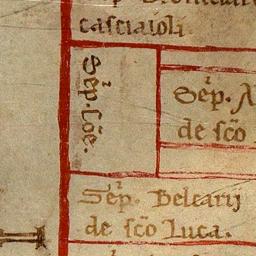 casciaioli
Sep̄. cōe.
Sep̄.
de sc̄o
Sep̄. Belcarij
de sc̄o Luca.